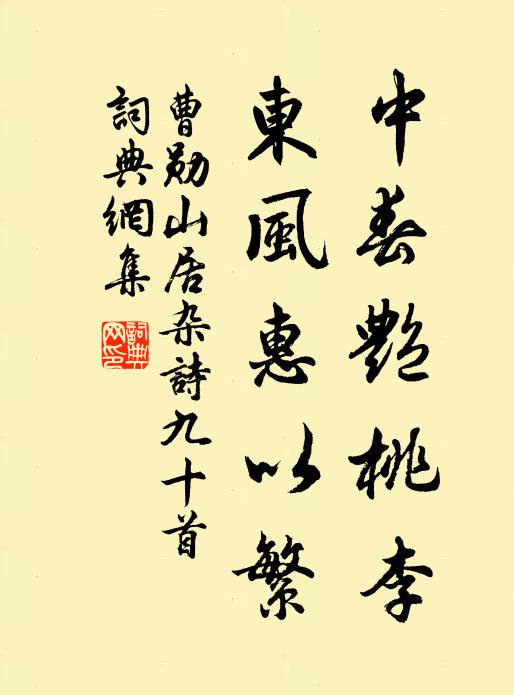 中春艷桃李
東風惠以繁
曹勛山居杂詩九十首
詞典網集
詞典
网印